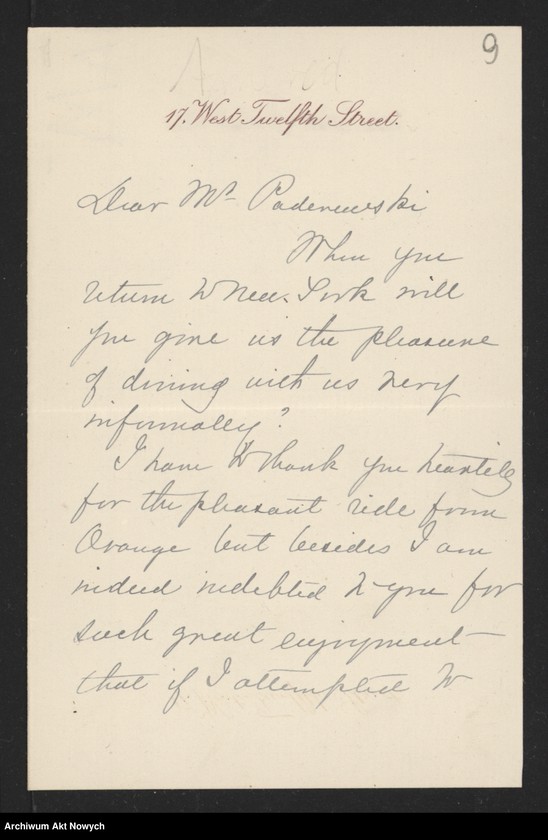 9
17. West Twelfth Street.
Dear Mr Paderewski
When you
return to New York will
you give us the pleasure
of dining with us very
informally?
I have to thank you heartily
for the pleasant ride from
Orange but besides I am
indeed indebted to you for
such great enjoyment
that if I attempted to
Archiwum Akt Nowych